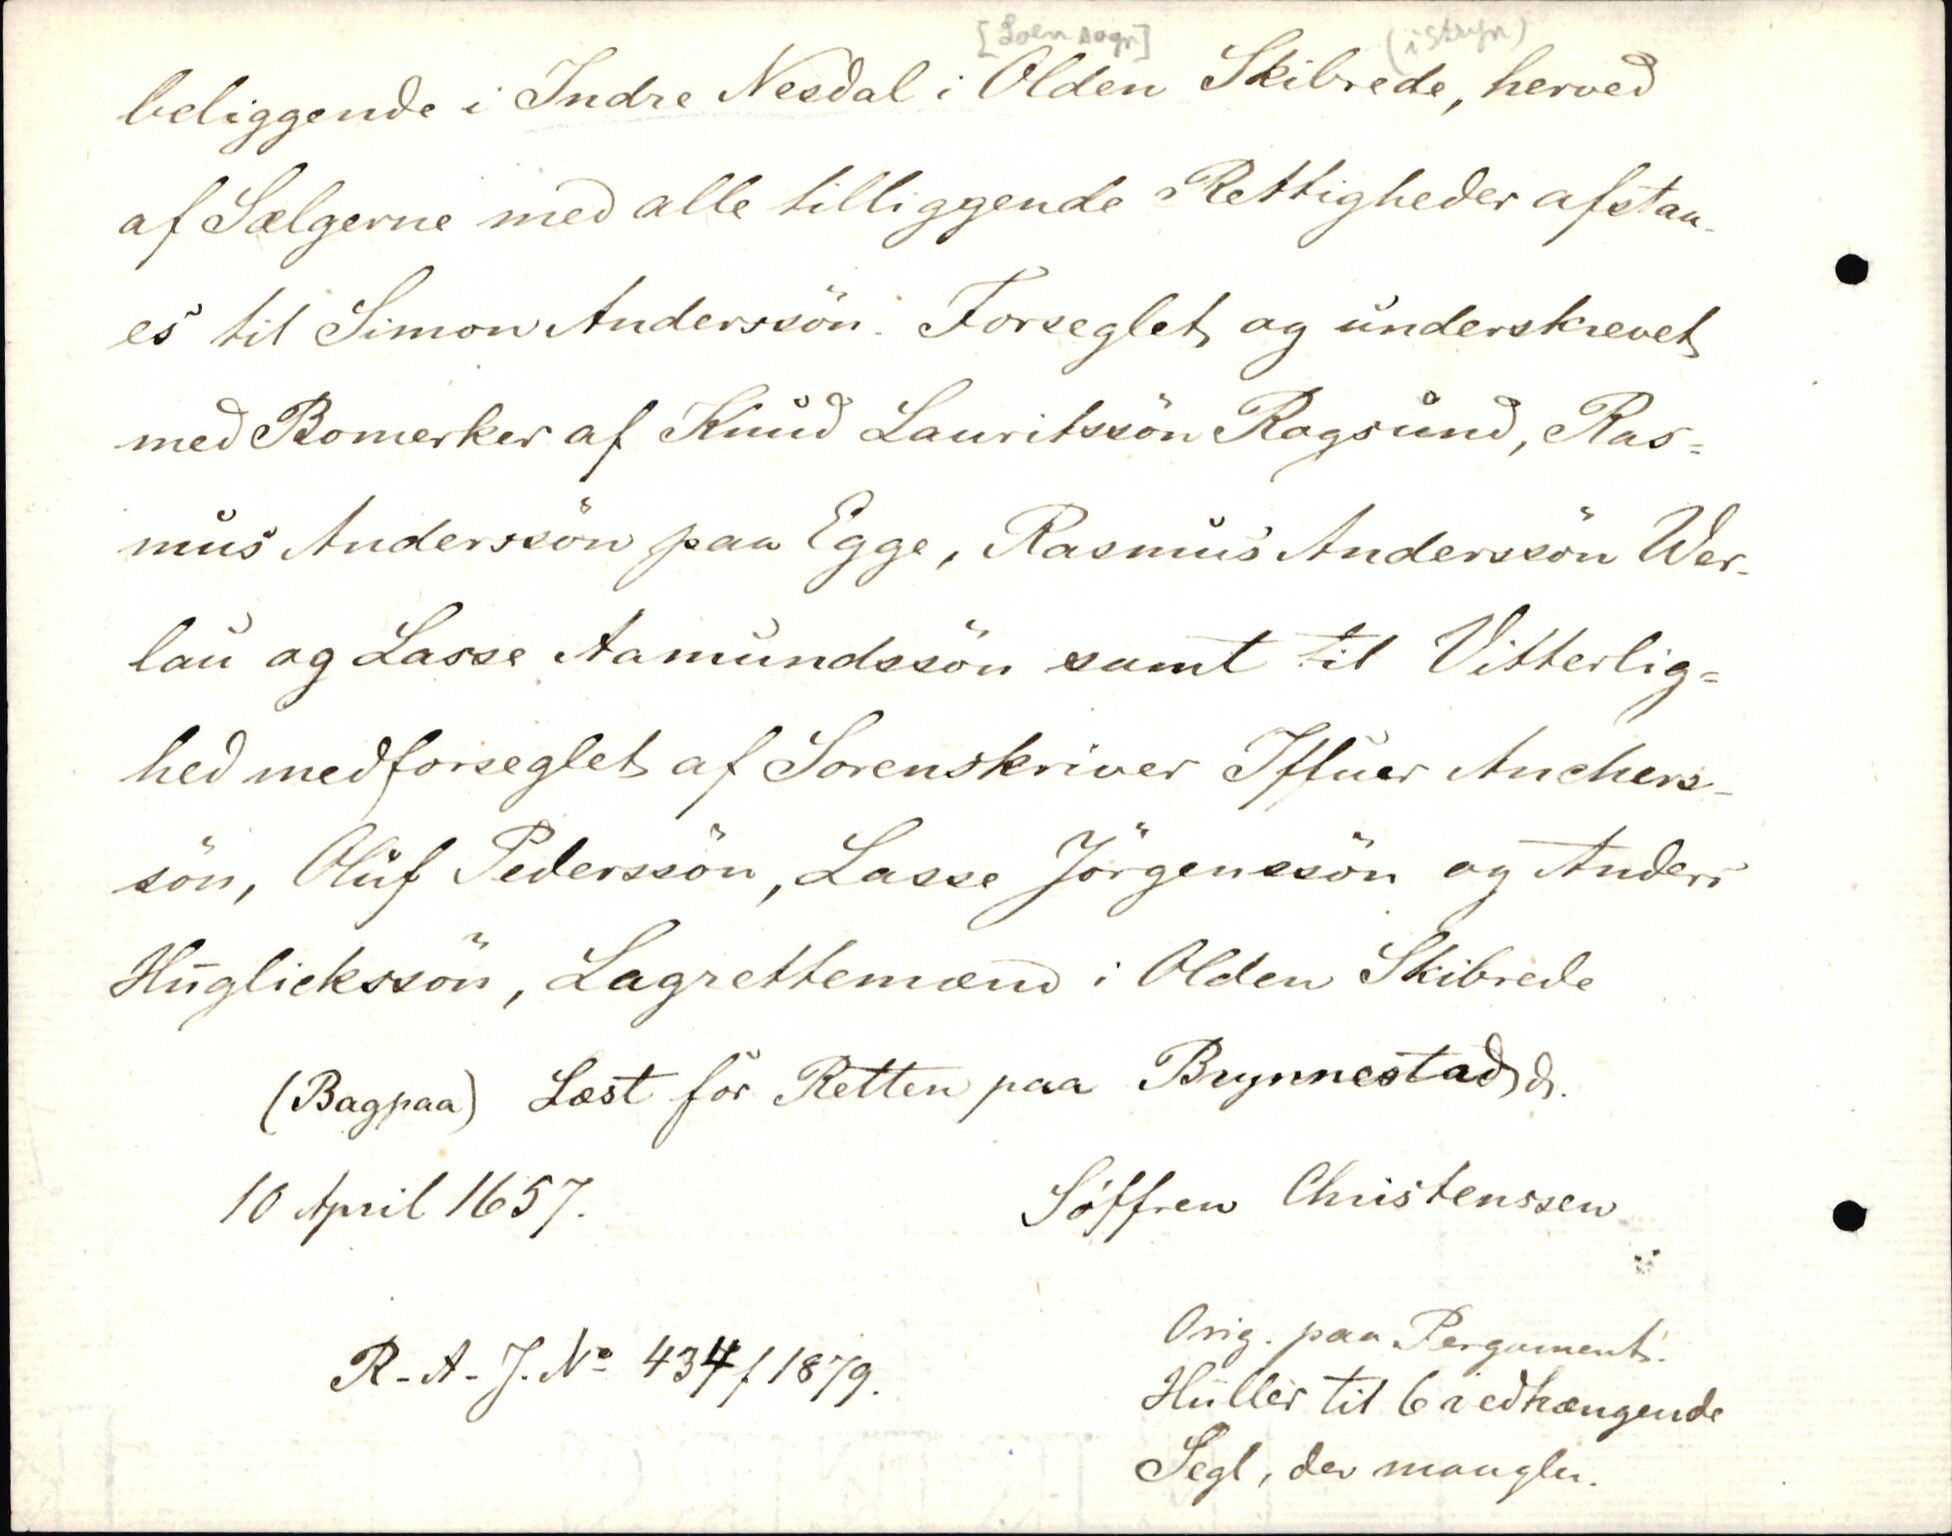 [Loen sogn] (i Stryn)
beliggende i Indre Nesdal i Olden Skibrede, herved
af Sælgerne med alle tilliggende Rettigheder afstaa-
es til Simon Anderssön. Forseglet og underskrevet
med Bomerker af Knud Lauritssön Rogsund, Ras=
mus Anderssön paa Egge, Rasmus Anderssön Wer-
lau og Lasse Aamundssön samt til Vitterlig=
hed medforseglet af Sorenskriver Iffuer Anchers-
sön, Oluf Pederssön, Lasse Jörgenssön og Anders
Huglickssön, Lagrettemænd i Olden Skibrede
(Bagpaa) Læst for Retten paa Brynnestad d.
10 April 1657. Söffren Christenssen
R-A-J. No 434/1879.
Orig. paa Pergament.
Huller til 6 vedhængende
Segl, der mangler.